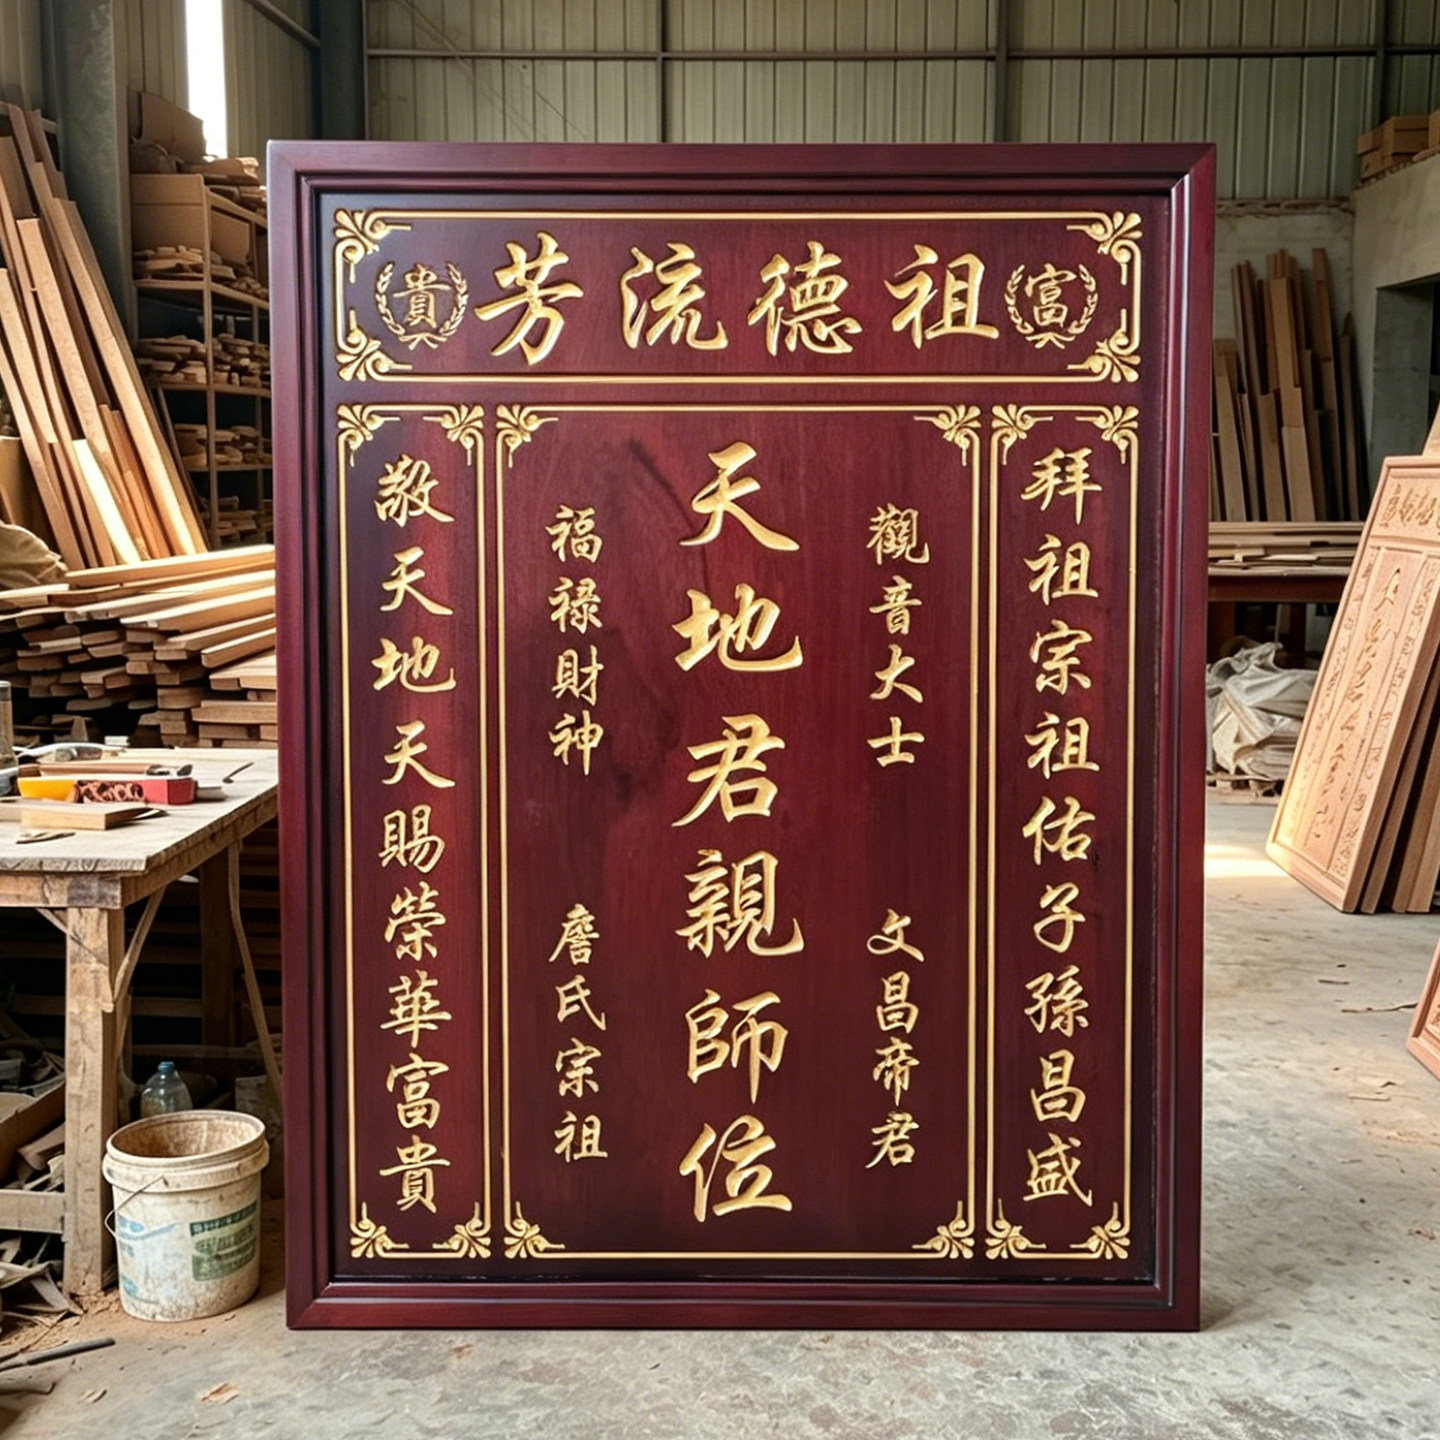 富 祖德流芳 貴
拜祖宗祖佑子孫昌盛
觀音大士
文昌帝君
天地君親師位
福祿財神
詹氏宗祖
敬天地天賜榮華富貴